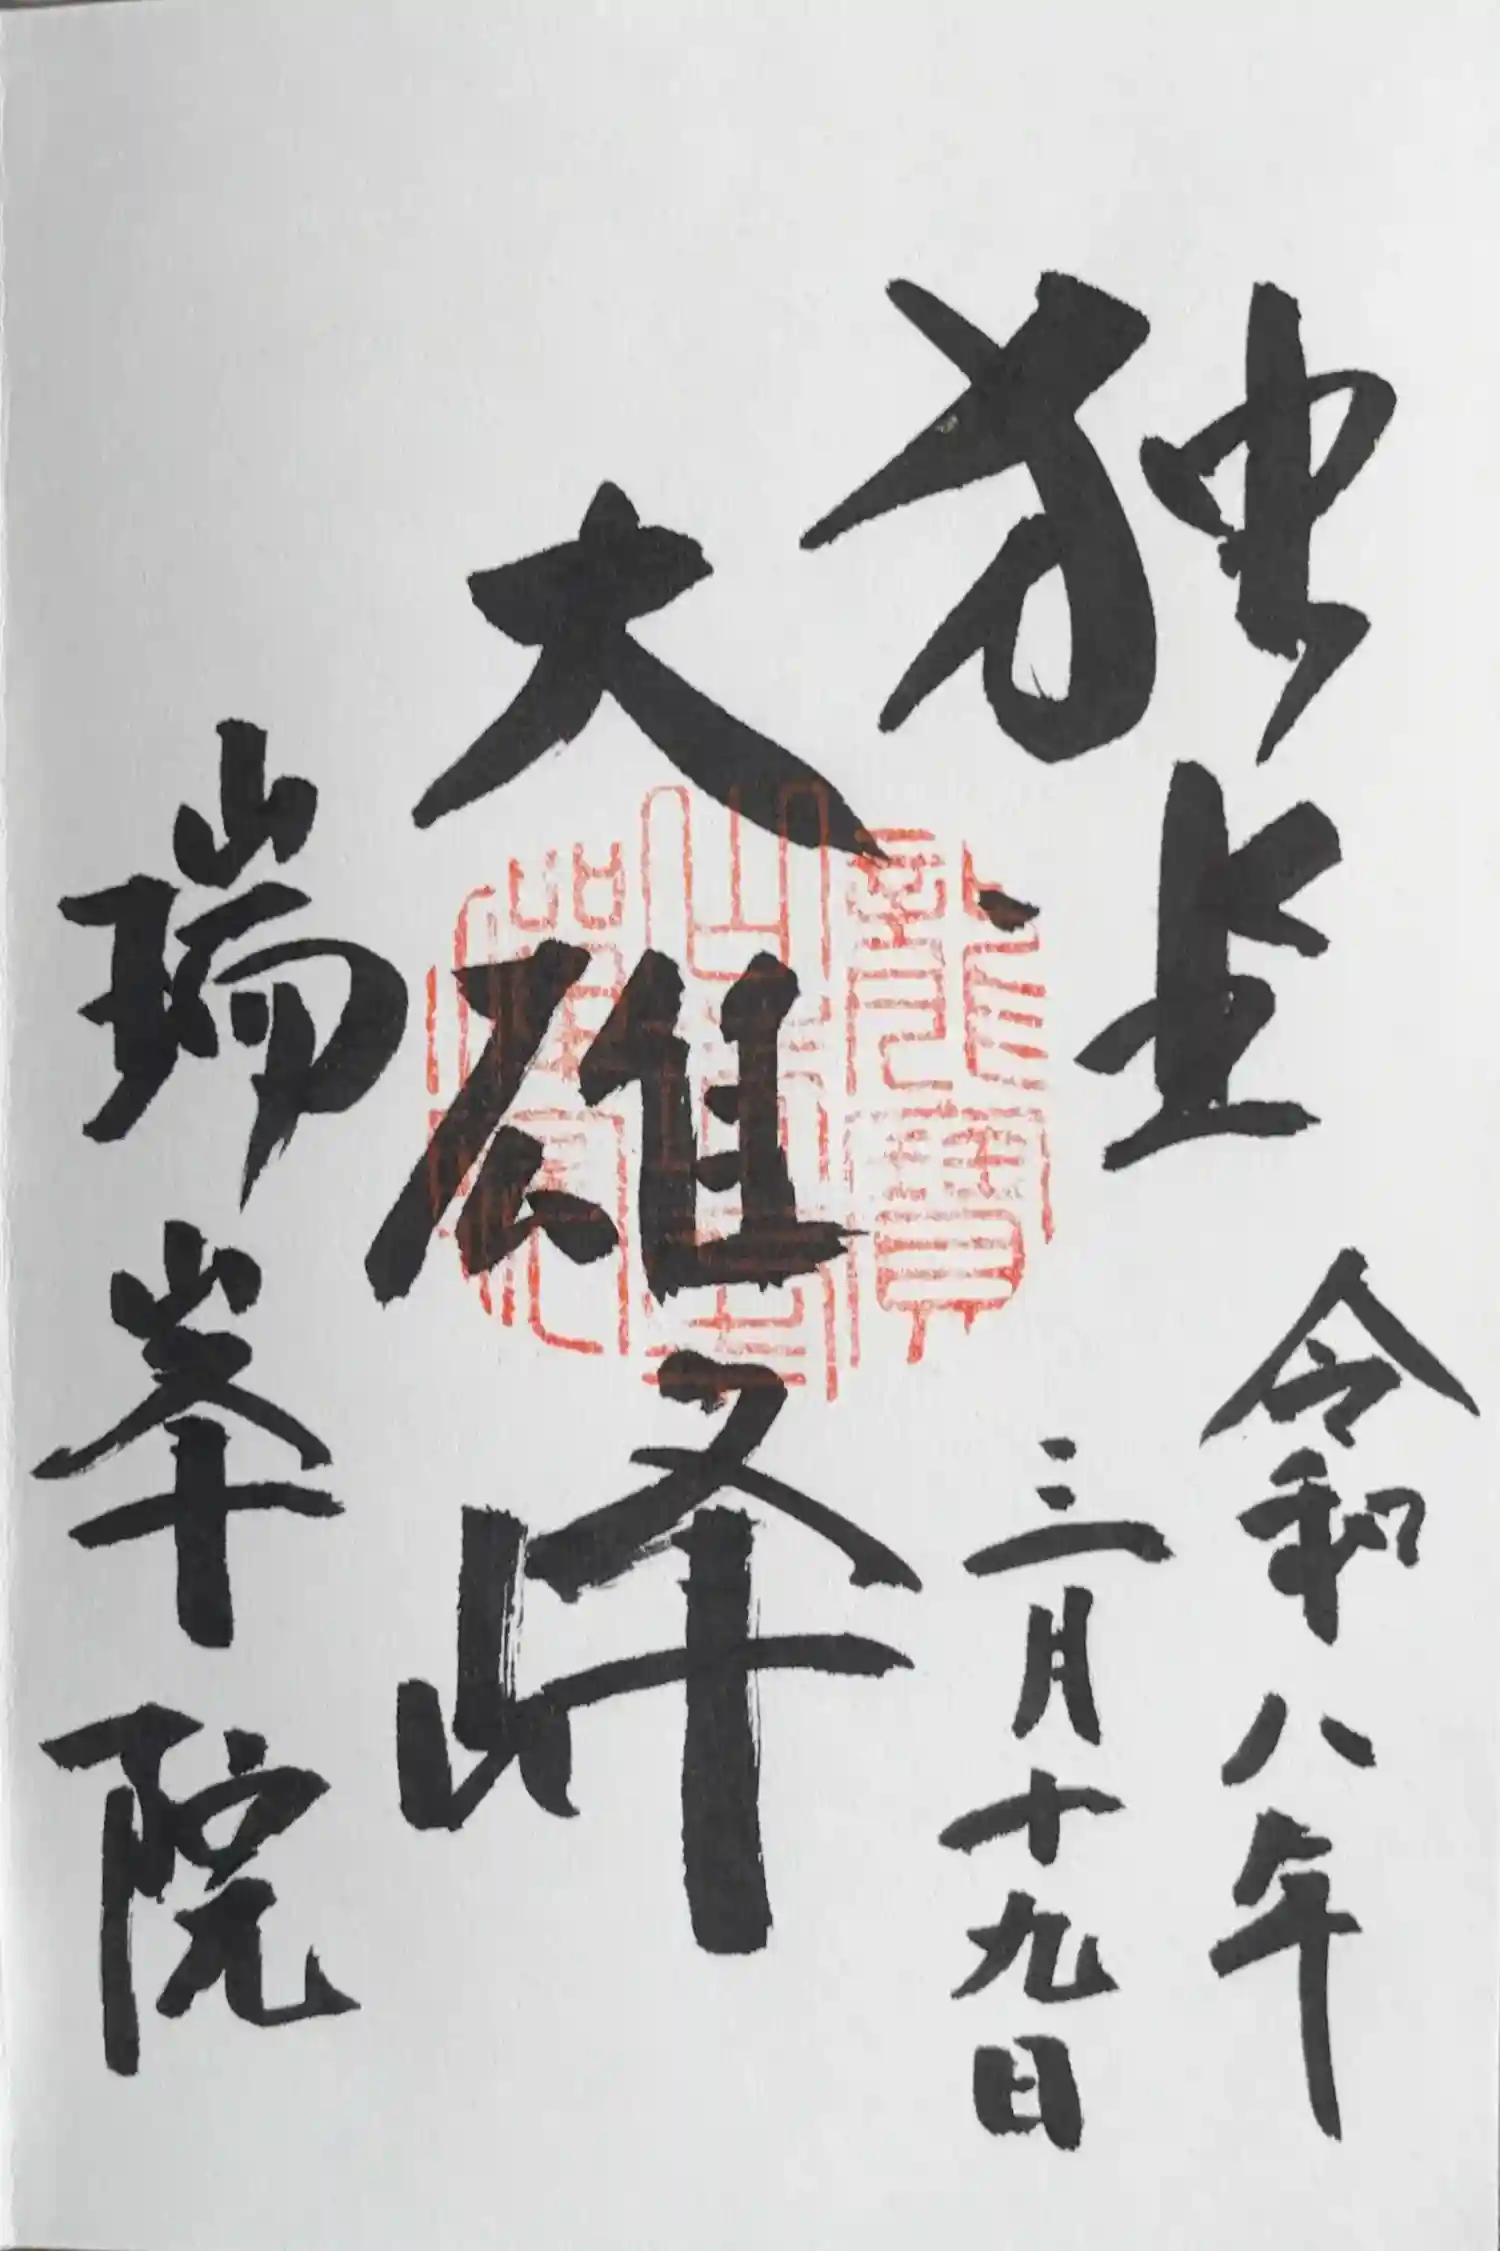 独坐
大雄峰
令和八年
三月十九日
瑞峯院